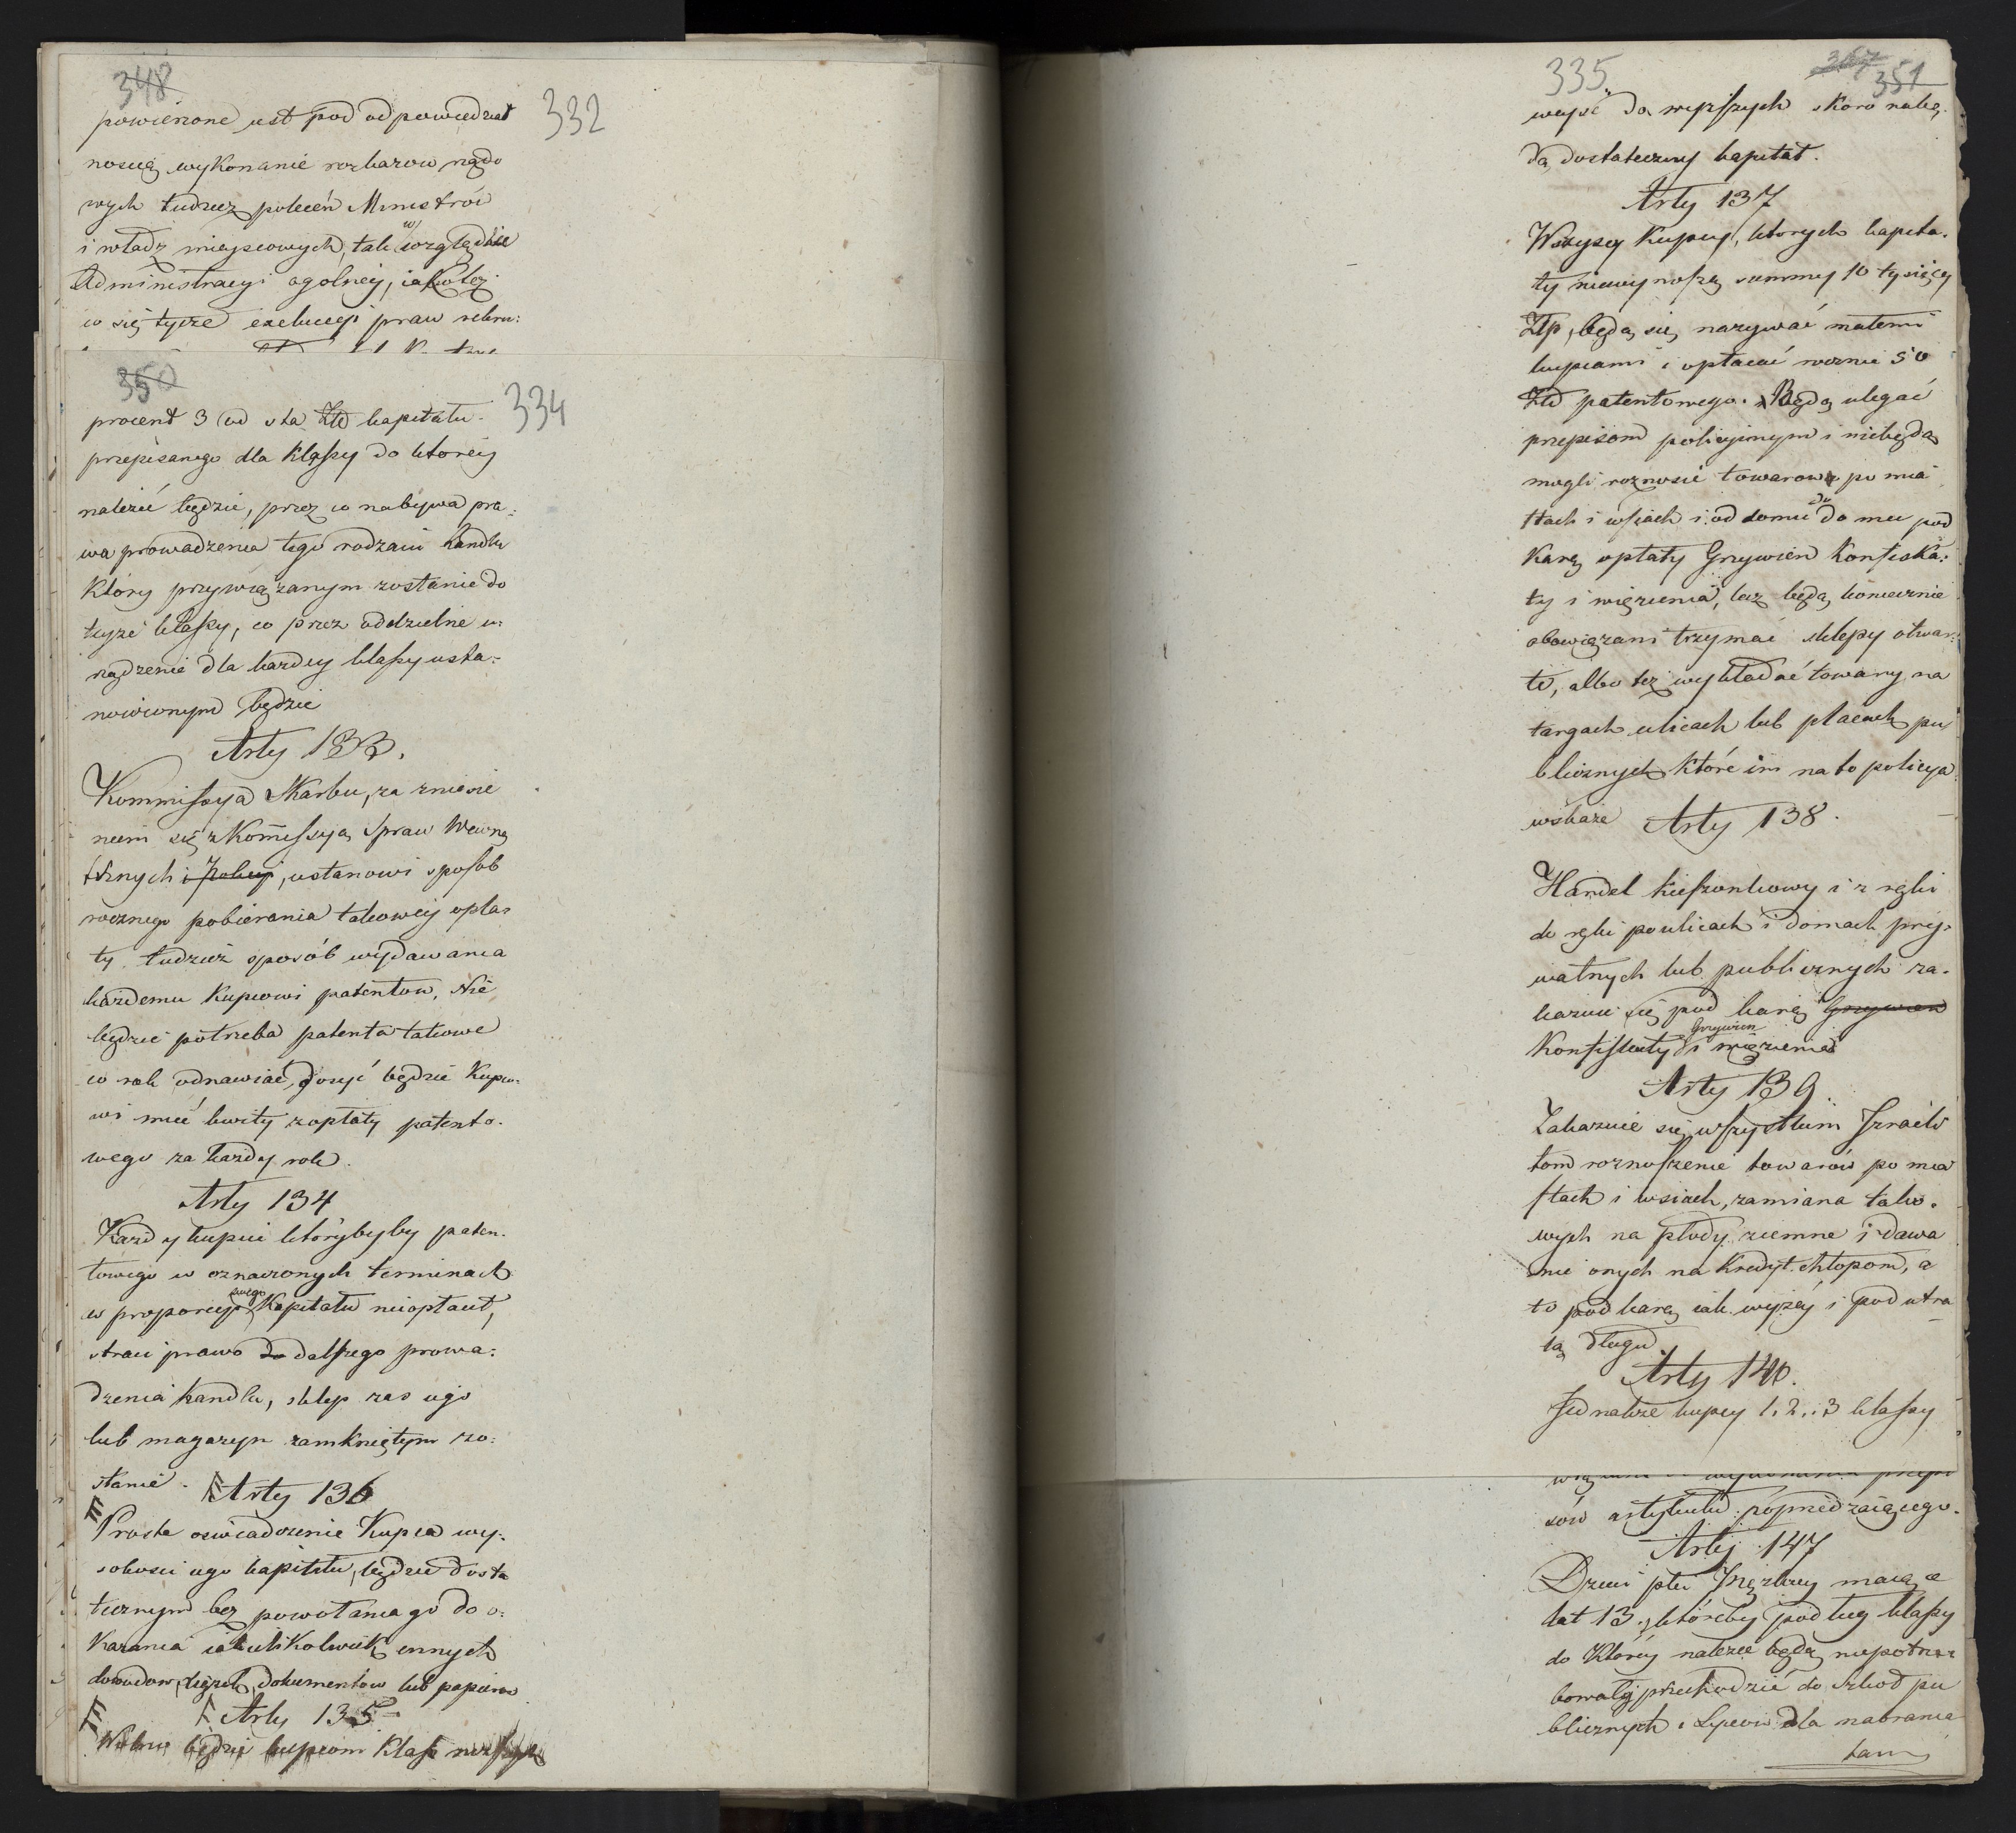 348
332
powierzone jest pod odpowiedzial
nością wykonanie rozkazow rządo
wych tudzież poleceń Ministrów
i władz mieyscowych, tak względnie
w
Administracyi ogolney, iakotez
co się tycze exekucyi praw rekru:
350
334
procent 3 od sta Złł kapitału
przepisanego dla Klassy do ktorey
należeć będzie, przez co nabywa pra:
wa prowadzenia tego rodzaiu handlu
Ktory przywiązanym zostanie do
teyże klassy, co przez oddzielne u:
rządzenie dla każdey klassy usta:
nowionym będzie
Arty 133.
Kommissya Skarbu, za zniesie
niem się z Kommissyą Spraw Wewnę
trznych i Policyi, ustanowi sposob
rocznego pobierania takowey opła:
ty tudzież sposób wydawania
każdemu Kupcowi patentow, Nie
będzie potrzeba patenta takowe
co rok odnawiać, dosyć będzie Kupco:
wi mieć kwity z opłaty patento.
wego za każdy rok.
Arty 134
Każdy kupiec któryby by paten.
towego w oznaczonych terminach
swego
w proporcyi Kapitału nieopłacił,
straci prawo do dalszego prowa:
dzenia handlu, sklep zas iego
lub magazyn zamkniętym zo:
stanie. Arty 136
Proste oswiadczenie Kupca wy:
sokosci iego kapitału, będzie dosta
tecznym bez powołania go do o:
kazania iakichkolwiek innych
dowodow, xiążek, dokumentow lub papierow
Arty 135
Wolno będzie kupcom Klass niższych
335
367
351
weyść do wyższych skoro nabę.
dą dostateczny kapitał.
Arty 137
Wszyscy Kupcy, ktorych kapita.
ły niewynoszą summy 10 tysięcy
Złp, będą się nazywać małemi
kupcami i opłacać rocznie 50
Złł patentowego. Będą ulegać
przepisom policyinym i niebędą
mogli roznosić towarow po mia
stach i wsiach i od domu do mu pod
do
Karą opłaty Grzywien Konfiska:
ty i więzienia, lecz będą koniecznie
obowiązani trzymać sklepy otwar:
te, albo też wykładać towary na
targach ulicach lub placach pu
blicznych które im na to policya
wskaże Arty 138.
Handel kieszonkowy i z ręki
do ręki po ulicach i domach pry:
watnych lub publicznych za.
kazuie się pod karą Grzywien
Grzywien
Konfiskaty i więzienia
Arty 139.
Zakazuie się wszystkim Izraeli
tom roznoszenie towarów po mia
stach i wsiach, zamiana tako.
wych na płody ziemne i dawa
nie onych na Kredyt chłopom, a
to pod karą iak wyżey i pod utra
tą długu.
Arty 140.
Jednakże kupcy 1. 2. i 3 klassy
sów artykułu poprzedzaiącego.
Arty 147
Dzieci płci Męzkiey maiące
lat 13. któreby podług klassy
do Którey należeć będą niepotrze
bowały przechodzić do szkoł pu
blicznych i Lyceow dla nabrania
tam